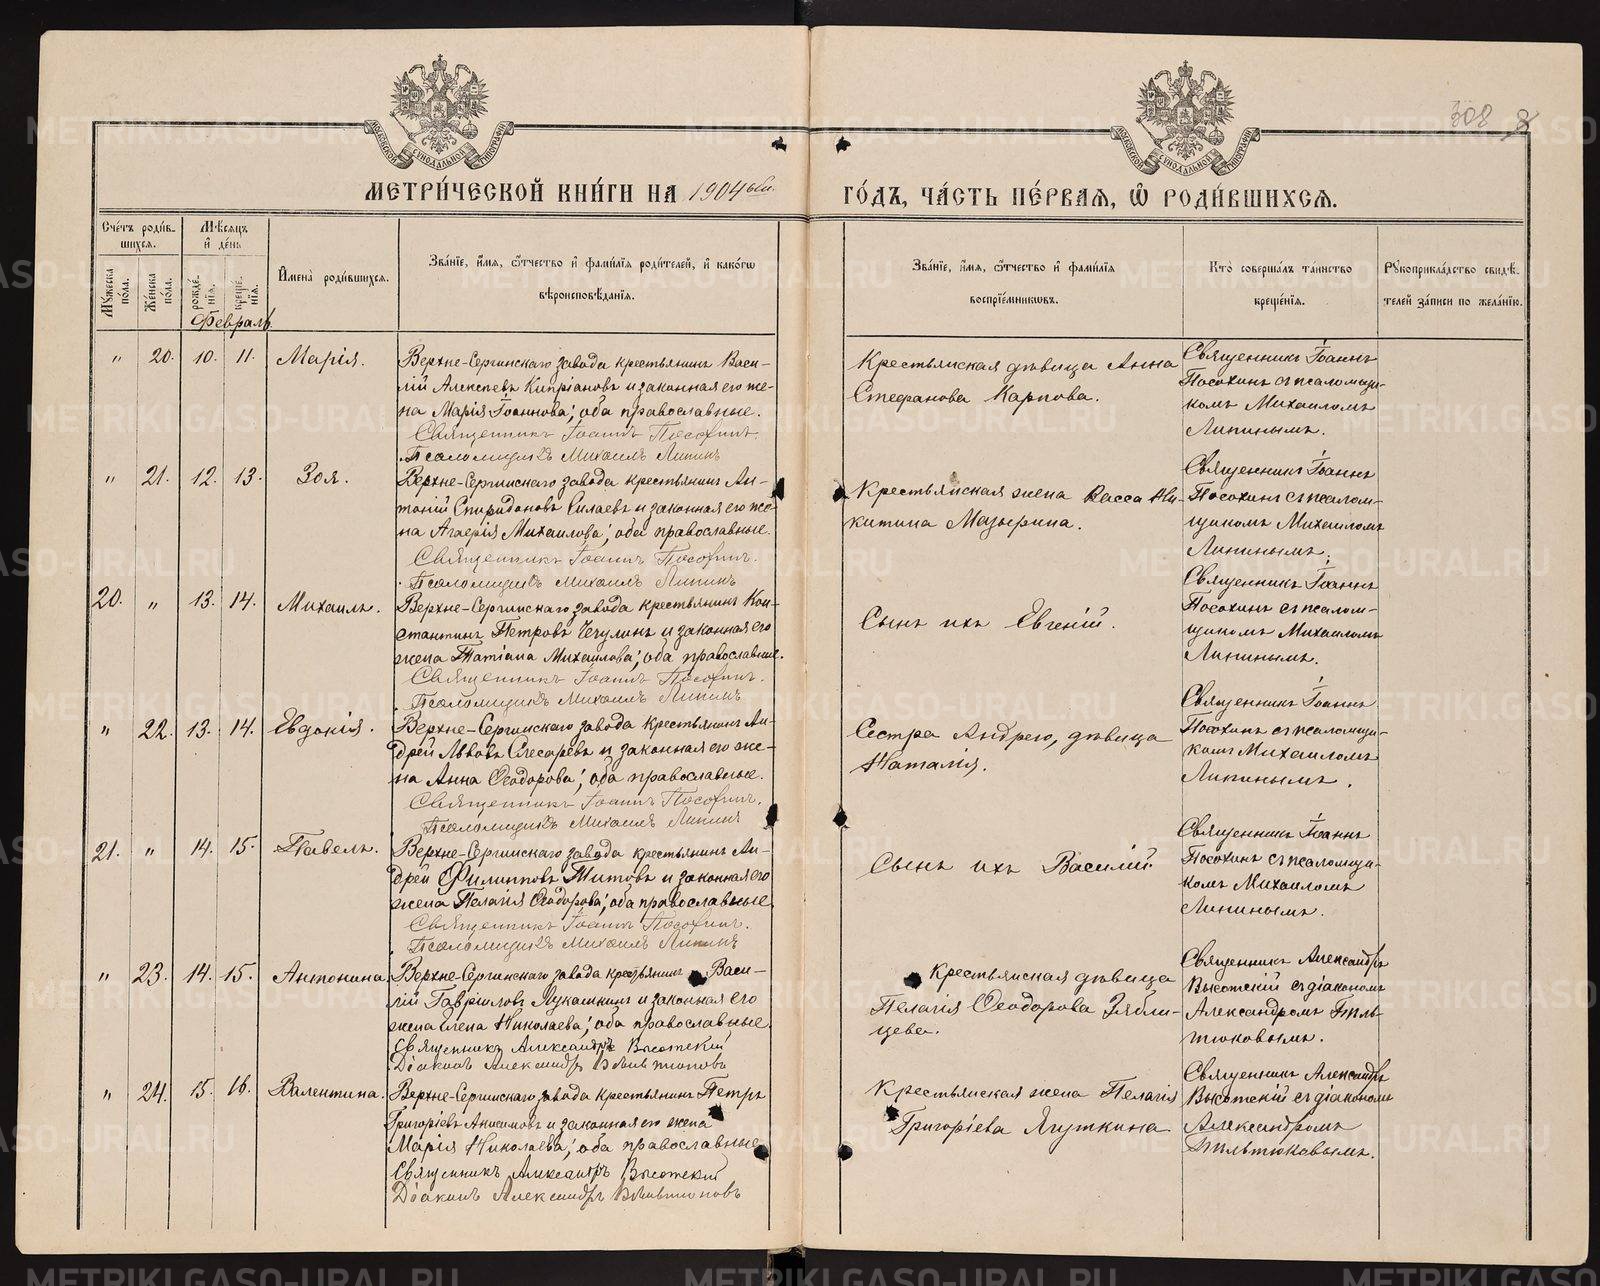 308 8
МЕТРИ́ЧЕСКОЙ КНИ́ГИ НА 1904ый
ГО́ДЪ, ЧА́СТЬ ПЕ́РВАЯ, Ѡ РОДИ́ВШИХСЯ.
Сче́тъ роди́в-
шихся.
Мѣ́сяцъ
и҆ де́нь
Му́жеска по́ла.
Же́нска по́ла.
рожде́-
нїя.
креще́-
нїя.
И҆мена̀ роди́вшихся.
Зва́нїе, и҆́мя, ѻ҆́тчество и҆ фами́лїя роди́телей, и҆ како́гѡ
вѣроисповѣ́данїя.
Зва́нїе, и҆́мя, ѻ҆́тчество и҆ фами́лїя
воспрїе́мникѡвъ.
Кто̀ соверша́лъ та́инство
креще́нїя.
Рꙋкоприкла́дство свидѣ́-
телей за́писи по жела́нїю.
Февраль
" 20. 10. 11. Марія.
Верхне-Сергинскаго завода крестьянинъ Васи-
лій Алексѣевъ Кипріановъ и законная его же-
на Марія Іоаннова; оба православные.
Священникъ Іоаннъ Посохинъ.
Псаломщикъ Михаилъ Липинъ
Крестьянская дѣвица Анна
Стефанова Карпова.
Священникъ Іоаннъ
Посохинъ съ псаломщи-
комъ Михаиломъ
Липинымъ.
" 21. 12. 13. Зоя.
Верхне-Сергинскаго завода крестьянинъ Ан-
тоній Спиридоновъ Силаевъ и законная его же-
на Агаѳія Михаилова; оба православные.
Священникъ Іоаннъ Посохинъ.
Псаломщикъ Михаилъ Липинъ
Крестьянская жена Васса Ни-
китина Мазырина.
Священникъ Іоаннъ
Посохинъ съ псалом-
щикомъ Михаиломъ
Липинымъ.
20. " 13. 14. Михаилъ.
Верхне-Сергинскаго завода крестьянинъ Кон-
стантинъ Петровъ Чечулинъ и законная его
жена Татіана Михаилова; оба православные.
Священникъ Іоаннъ Посохинъ.
Псаломщикъ Михаилъ Липинъ
Сынъ ихъ Евгеній.
Священникъ Іоаннъ
Посохинъ съ псалом-
щикомъ Михаиломъ
Липинымъ.
" 22. 13. 14. Евдокія.
Верхне-Сергинскаго завода крестьянинъ Ан-
дрей Львовъ Слесаревъ и законная его же-
на Анна Ѳеодорова; оба православные.
Священникъ Іоаннъ Посохинъ.
Псаломщикъ Михаилъ Липинъ
Сестра Андрею, дѣвица
Наталія.
Священникъ Іоаннъ
Посохинъ съ псаломщи-
комъ Михаиломъ
Липинымъ.
21. " 14. 15. Павелъ.
Верхне-Сергинскаго завода крестьянинъ Ан-
дрей Филипповъ Титовъ и законная его
жена Пелагія Ѳеодорова; оба православные
Священникъ Іоаннъ Посохинъ.
Псаломщикъ Михаилъ Липинъ
Сынъ ихъ Василій.
Священникъ Іоаннъ
Посохинъ съ псаломщи-
комъ Михаиломъ
Липинымъ.
" 23. 14. 15. Антонина.
Верхне-Сергинскаго завода крестьянинъ Васи-
лій Гавріиловъ Лукашкинъ и законная его
жена Елена Николаева; оба православные.
Священникъ Александръ Высотскій
Діаконъ Александръ
Крестьянская дѣвица
Пелагія Ѳеодорова Зябли-
цева.
Священникъ Александръ
Высотскій съ діакономъ
Александромъ Пиль-
тюковымъ.
" 24. 15. 16. Валентина.
Верхне-Сергинскаго завода крестьянинъ Петръ
Григорьевъ Анисимовъ и законная его жена
Марія Николаева; оба православные
Священникъ Александръ Высотскій
Діаконъ Александръ
Крестьянская жена Пелагія
Григоріева Ягуткина
Священникъ Александръ
Высотскій съ діакономъ
Александромъ
Пильтюковымъ.
METRIKI.GASO-URAL.RU